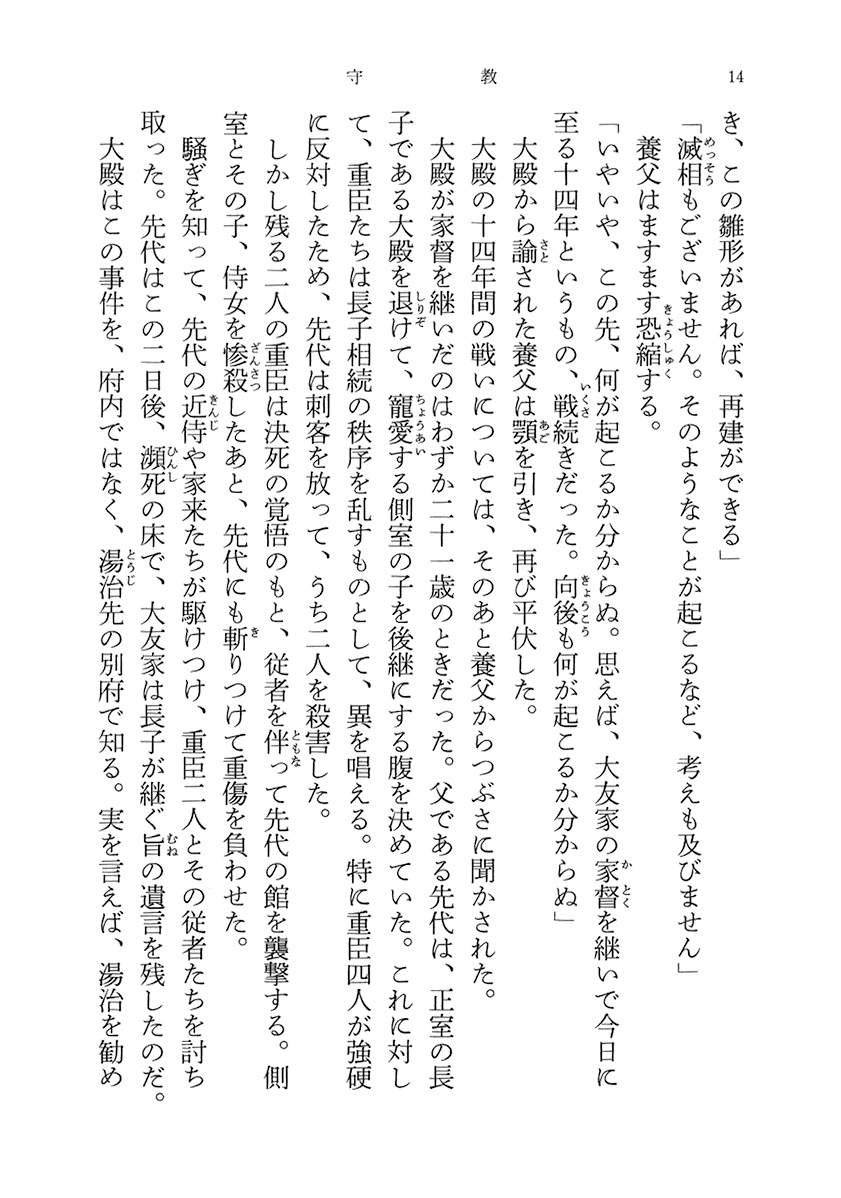 14
守教
き、この雛形があれば、再建ができる」
「滅相もございません。そのようなことが起こるなど、考えも及びません」
養父はますます恐縮する。
「いやいや、この先、何が起こるか分からぬ。思えば、大友家の家督を継いで今日に
至る十四年というもの、戦続きだった。向後も何が起こるか分からぬ」
大殿から諭された養父は顎を引き、再び平伏した。
大殿の十四年間の戦いについては、そのあと養父からつぶさに聞かされた。
大殿が家督を継いだのはわずか二十一歳のときだった。父である先代は、正室の長
子である大殿を退けて、寵愛する側室の子を後継にする腹を決めていた。これに対し
て、重臣たちは長子相続の秩序を乱すものとして、異を唱える。特に重臣四人が強硬
に反対したため、先代は刺客を放って、うち二人を殺害した。
しかし残る二人の重臣は決死の覚悟のもと、従者を伴って先代の館を襲撃する。側
室とその子、侍女を惨殺したあと、先代にも斬りつけて重傷を負わせた。
騒ぎを知って、先代の近侍や家来たちが駆けつけ、重臣二人とその従者たちを討ち
取った。先代はこの二日後、瀕死の床で、大友家は長子が継ぐ旨の遺言を残したのだ。
大殿はこの事件を、府内ではなく、湯治先の別府で知る。実を言えば、湯治を勧め